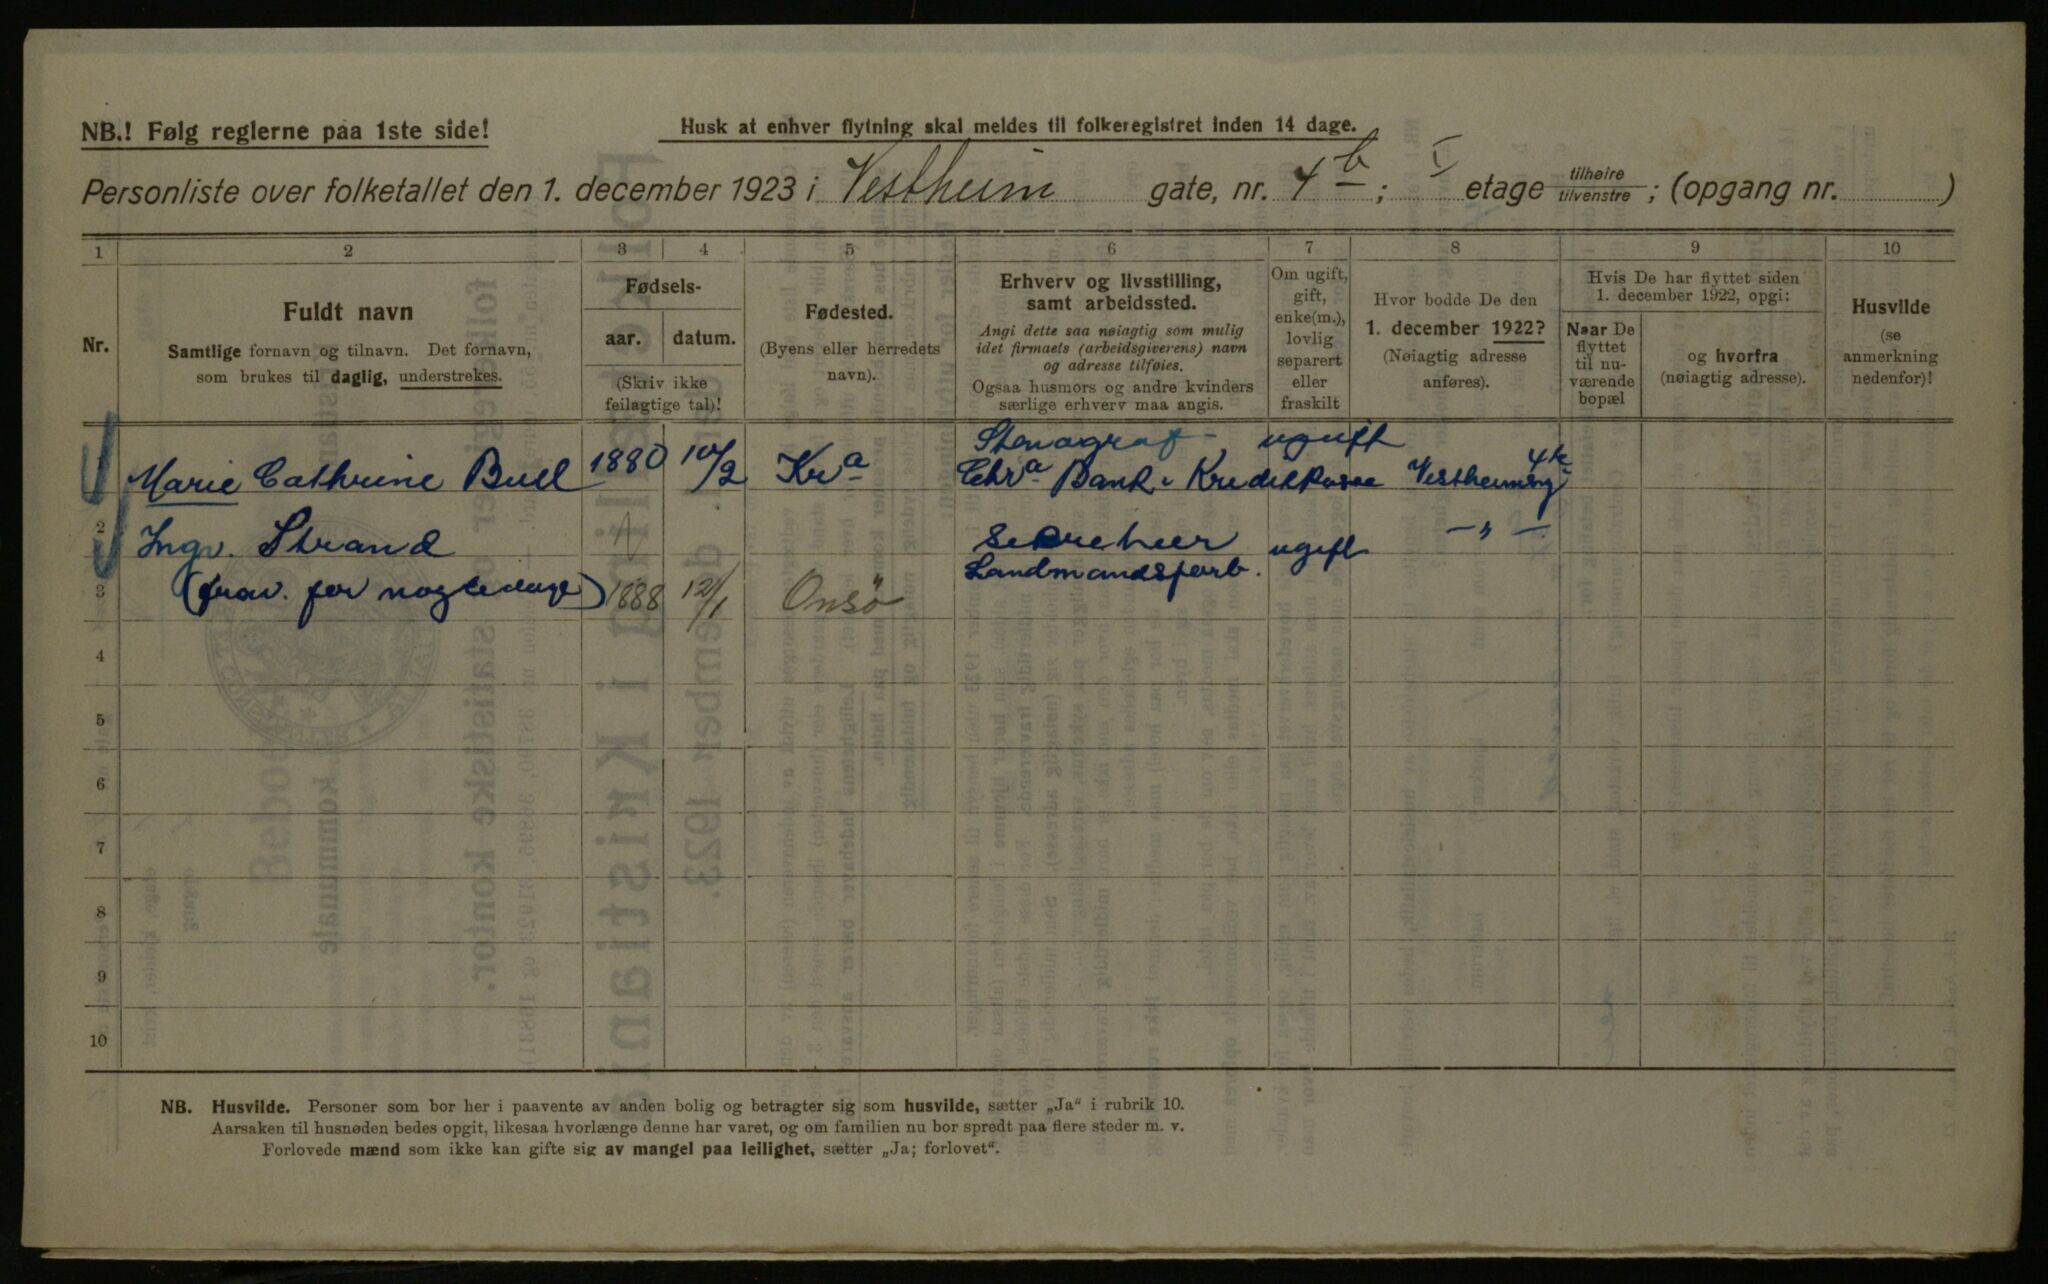 NB.! Følg reglerne paa 1ste side!
Husk at enhver flytning skal meldes til folkeregistret inden 14 dage.
Personliste over folketallet den 1. december 1923 i Vestheim gate, nr. 4b; I etage tilhøire tilvenstre; (opgang nr. )
1 2 3 4 5 6 7 8 9 10
Nr.
Fuldt navn
Samtlige fornavn og tilnavn. Det fornavn,
som brukes til daglig, understrekes.
Fødsels-
aar. datum.
(Skriv ikke
feilagtige tal)!
Fødested.
(Byens eller herredets
navn).
Erhverv og livsstilling,
samt arbeidssted.
Angi dette saa nøiagtig som mulig
idet firmaets (arbeidsgiverens) navn
og adresse tilføies.
Ogsaa husmors og andre kvinders
særlige erhverv maa angis.
Om ugift,
gift,
enke(m.),
lovlig
separert
eller
fraskilt
Hvor bodde De den
1. december 1922?
(Nøiagtig adresse
anføres).
Hvis De har flyttet siden
1. december 1922, opgi:
Naar De
flyttet
til nu-
værende
bopæl
og hvorfra
(nøiagtig adresse).
Husvilde
(se
anmerkning
nedenfor)!
Stenograf ugift
Marie Cathrine Buel 1880 10/2 Kra Chra Bank & Kreditkasse Vestheimsg 4b
2 Ingv. Strand Secretær ugift — " —
Landmandsforb.
3 (frav. for nogle dage) 1888 12/1 Onsö
4
5
6
7
8
9
10
NB. Husvilde. Personer som bor her i paavente av anden bolig og betragter sig som husvilde, sætter „Ja“ i rubrik 10.
Aarsaken til husnøden bedes opgit, likesaa hvorlænge denne har varet, og om familien nu bor spredt paa flere steder m. v.
Forlovede mænd som ikke kan gifte sig av mangel paa leilighet, sætter „Ja; forlovet“.